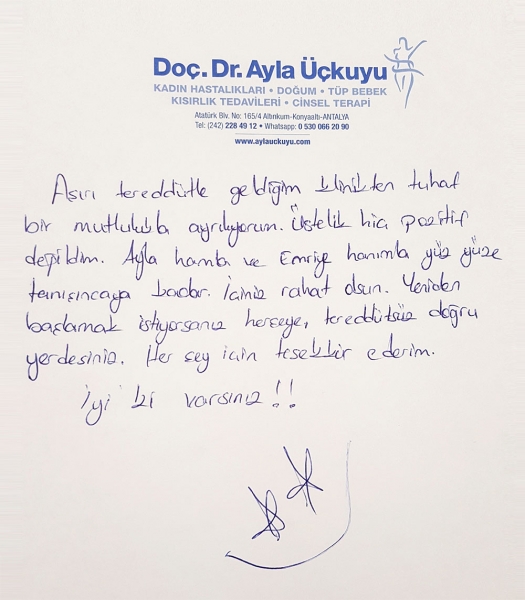 Doç. Dr. Ayla Üçkuyu
KADIN HASTALIKLARI • DOĞUM • TÜP BEBEK
KISIRLIK TEDAVİLERİ • CİNSEL TERAPİ
Atatürk Blv. No: 165/4 Altınkum-Konyaaltı-ANTALYA
Tel: (242) 228 49 12 • Whatsapp: 0 530 066 20 90
www.aylauckuyu.com
Aşırı tereddütle geldiğim klinikten tuhaf
bir mutlulukla ayrılıyorum. Üstelik hiç pozitif
değildim. Ayla hanımla ve Emriye hanımla yüz yüze
tanışıncaya kadar. İçiniz rahat olsun. Yeniden
başlamak istiyorsanız herşeye, tereddütsüz doğru
yerdesiniz. Her şey için teşekkür ederim.
İyi ki varsınız!!